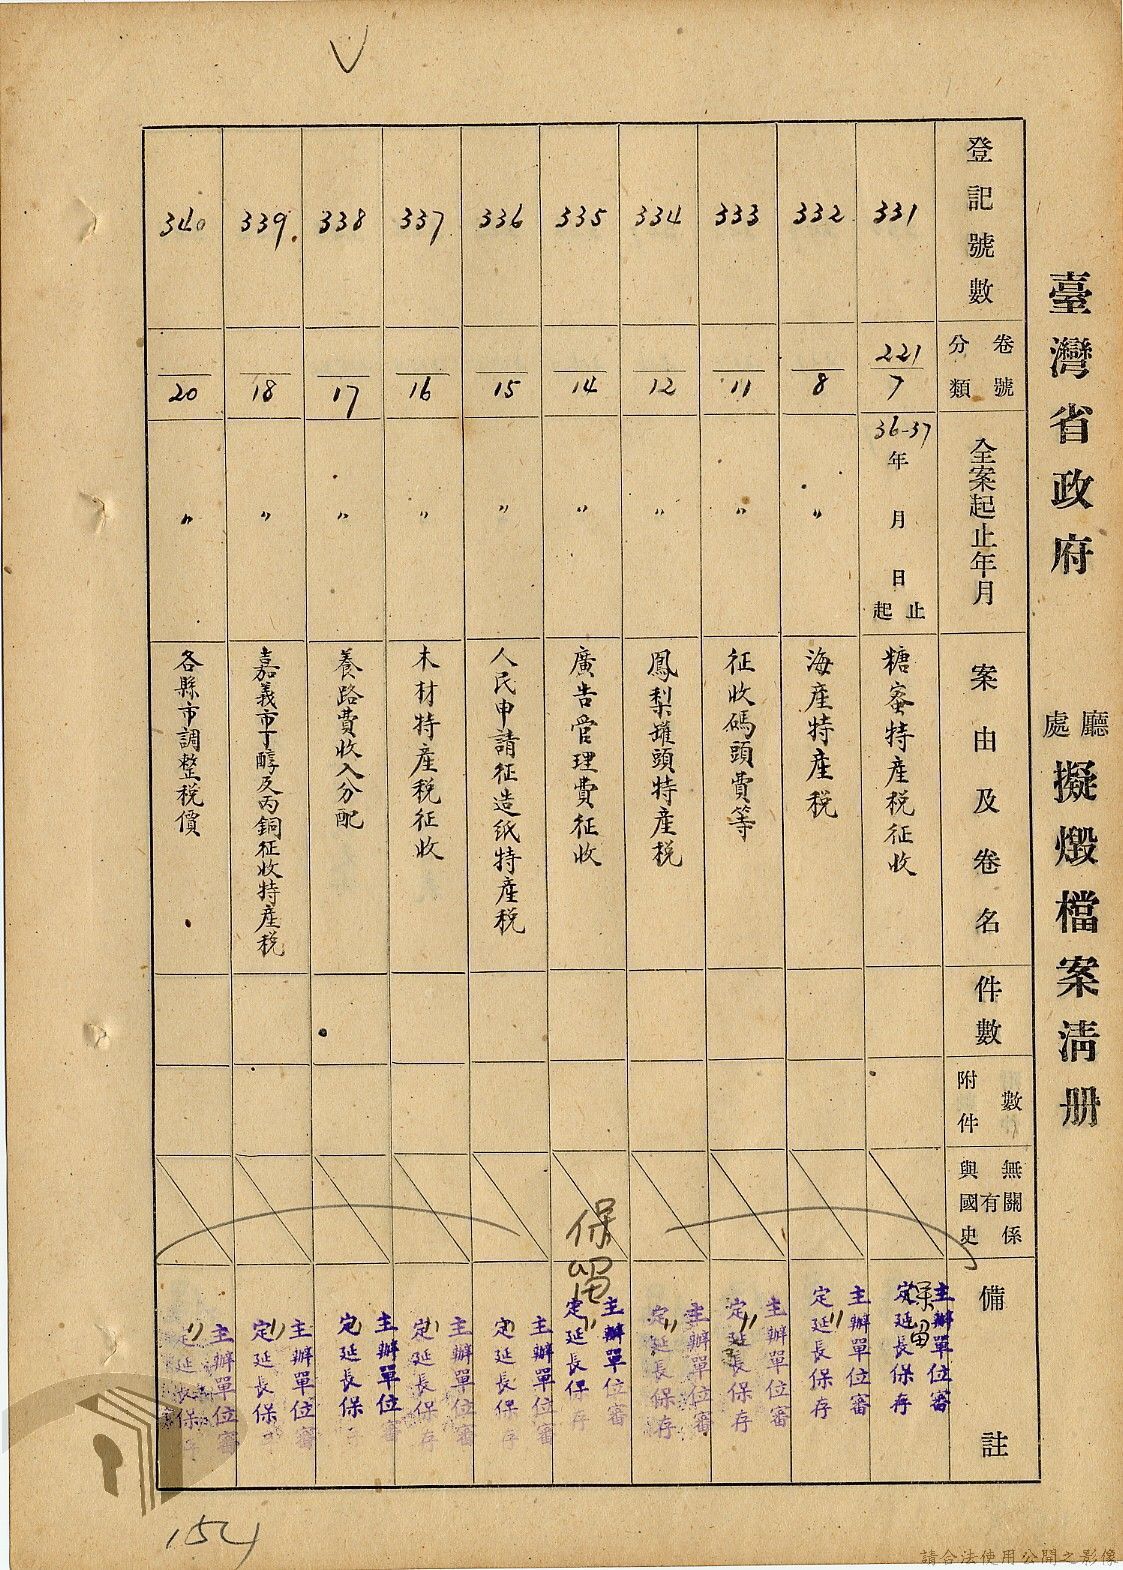 臺灣省政府 廳處 擬燬檔案清册
登記號數
卷號
分類
全案起止年月
案由及卷名
件數
附件數
與國史有無關係
備註
331
221/7
36-37年 月 日起止
糖蜜特產稅征收
保留
主辦單位審定延長保存
332
8
〃
海產特產稅
〃
主辦單位審定延長保存
333
11
〃
征收碼頭費等
〃
主辦單位審定延長保存
334
12
〃
鳳梨罐頭特產稅
〃
主辦單位審定延長保存
335
14
〃
廣告管理費征收
保留
〃
主辦單位審定延長保存
336
15
〃
人民申請征造紙特產稅
〃
主辦單位審定延長保存
337
16
〃
木材特產稅征收
〃
主辦單位審定延長保存
338
17
〃
養路費收入分配
主辦單位審定延長保存
339
18
〃
嘉義市丁醇及丙銅征收特產稅
〃
主辦單位審定延長保存
340
20
〃
各縣市調整稅價
〃
主辦單位審定延長保存
154
請合法使用公開之影像